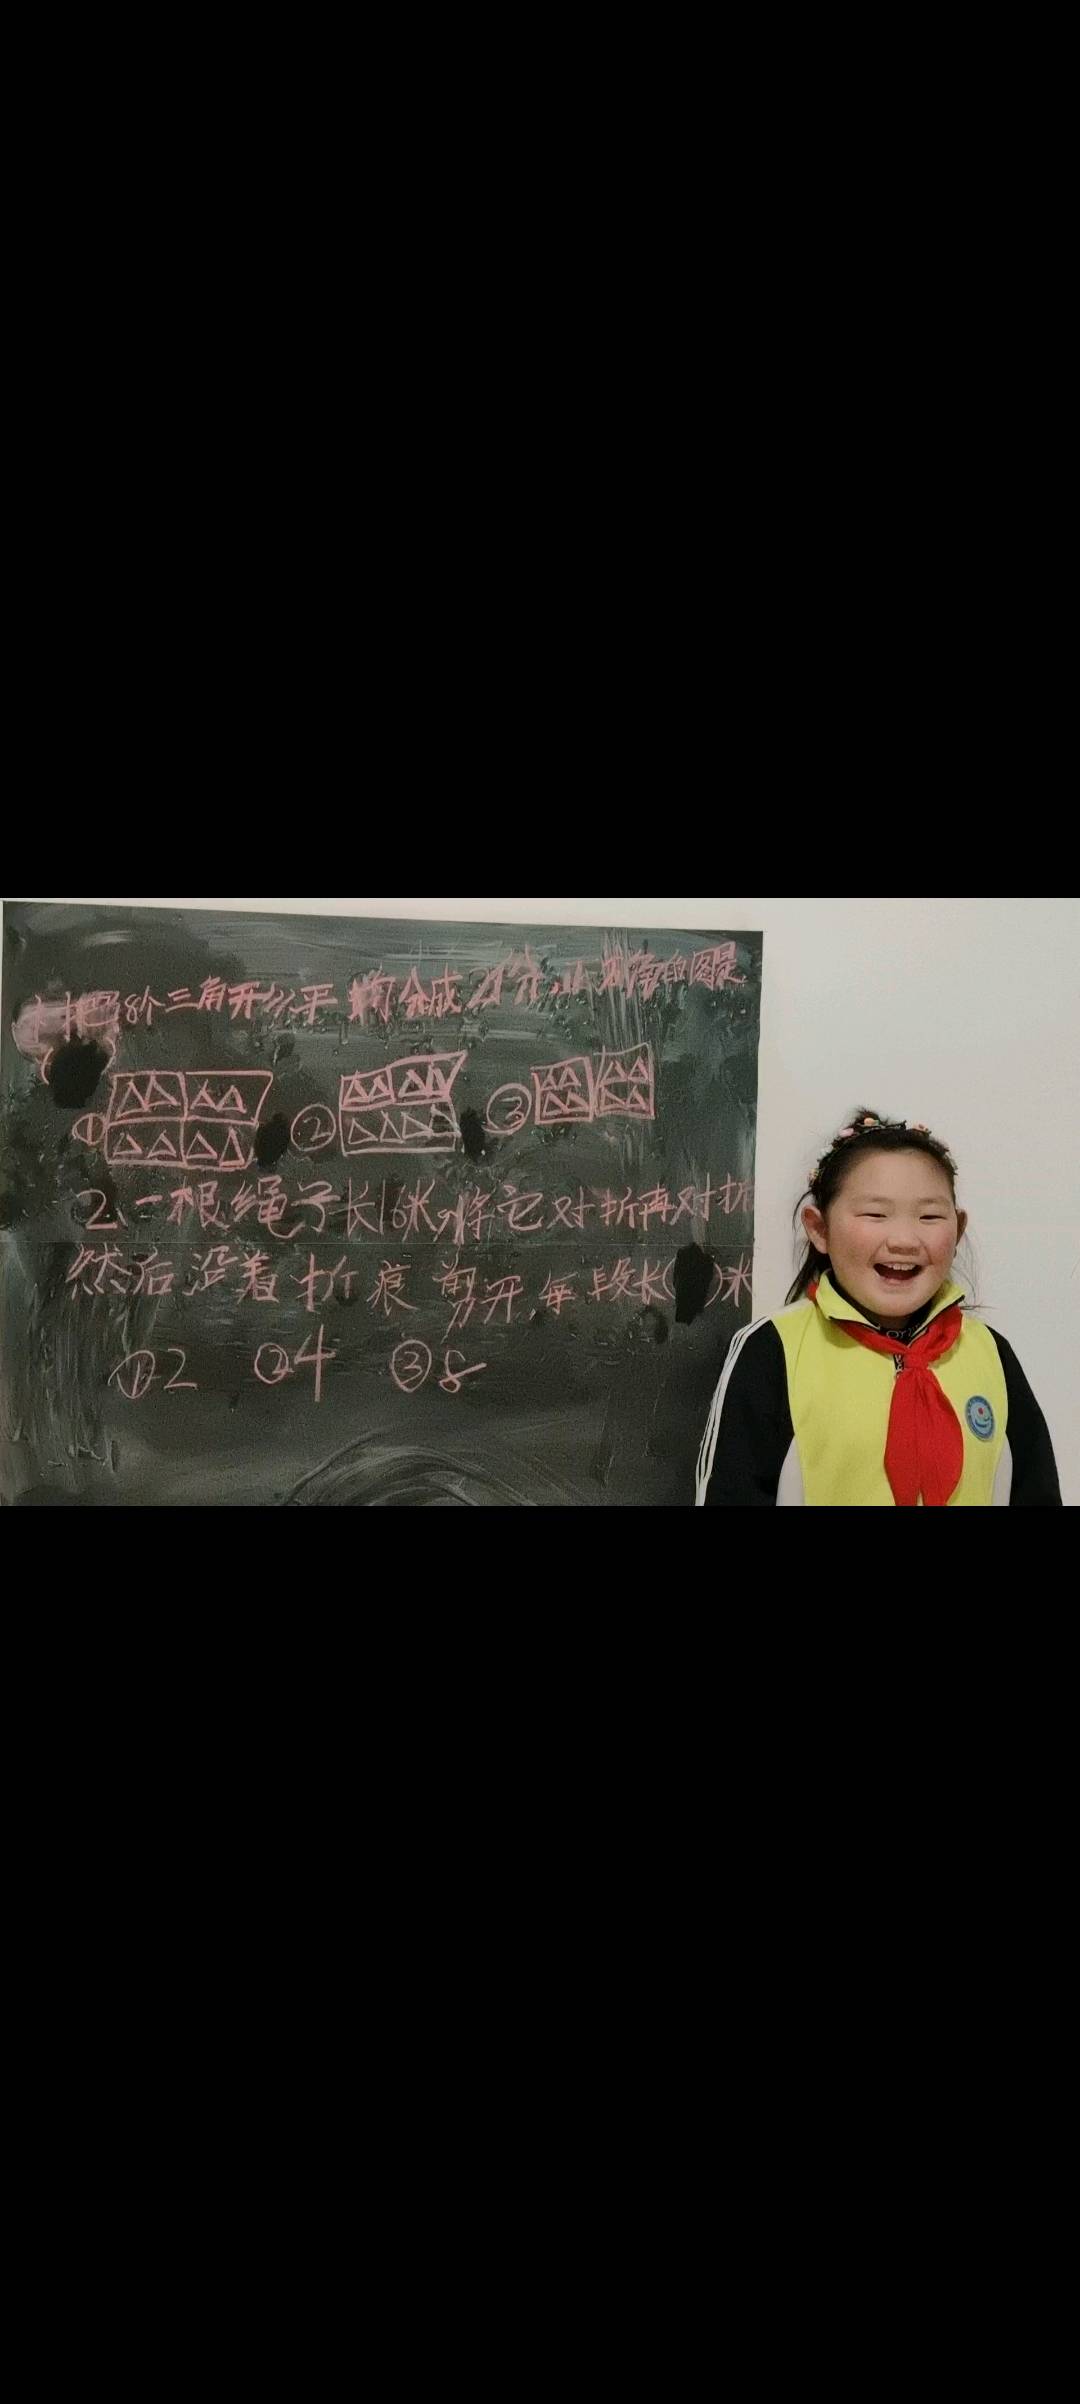 1.把8个三角形平均分成2份,正确的图是
( )
① ② ③
2.一根绳子长16米,将它对折再对折
然后沿着折痕剪开,每段长( )米
①2 ②4 ③8